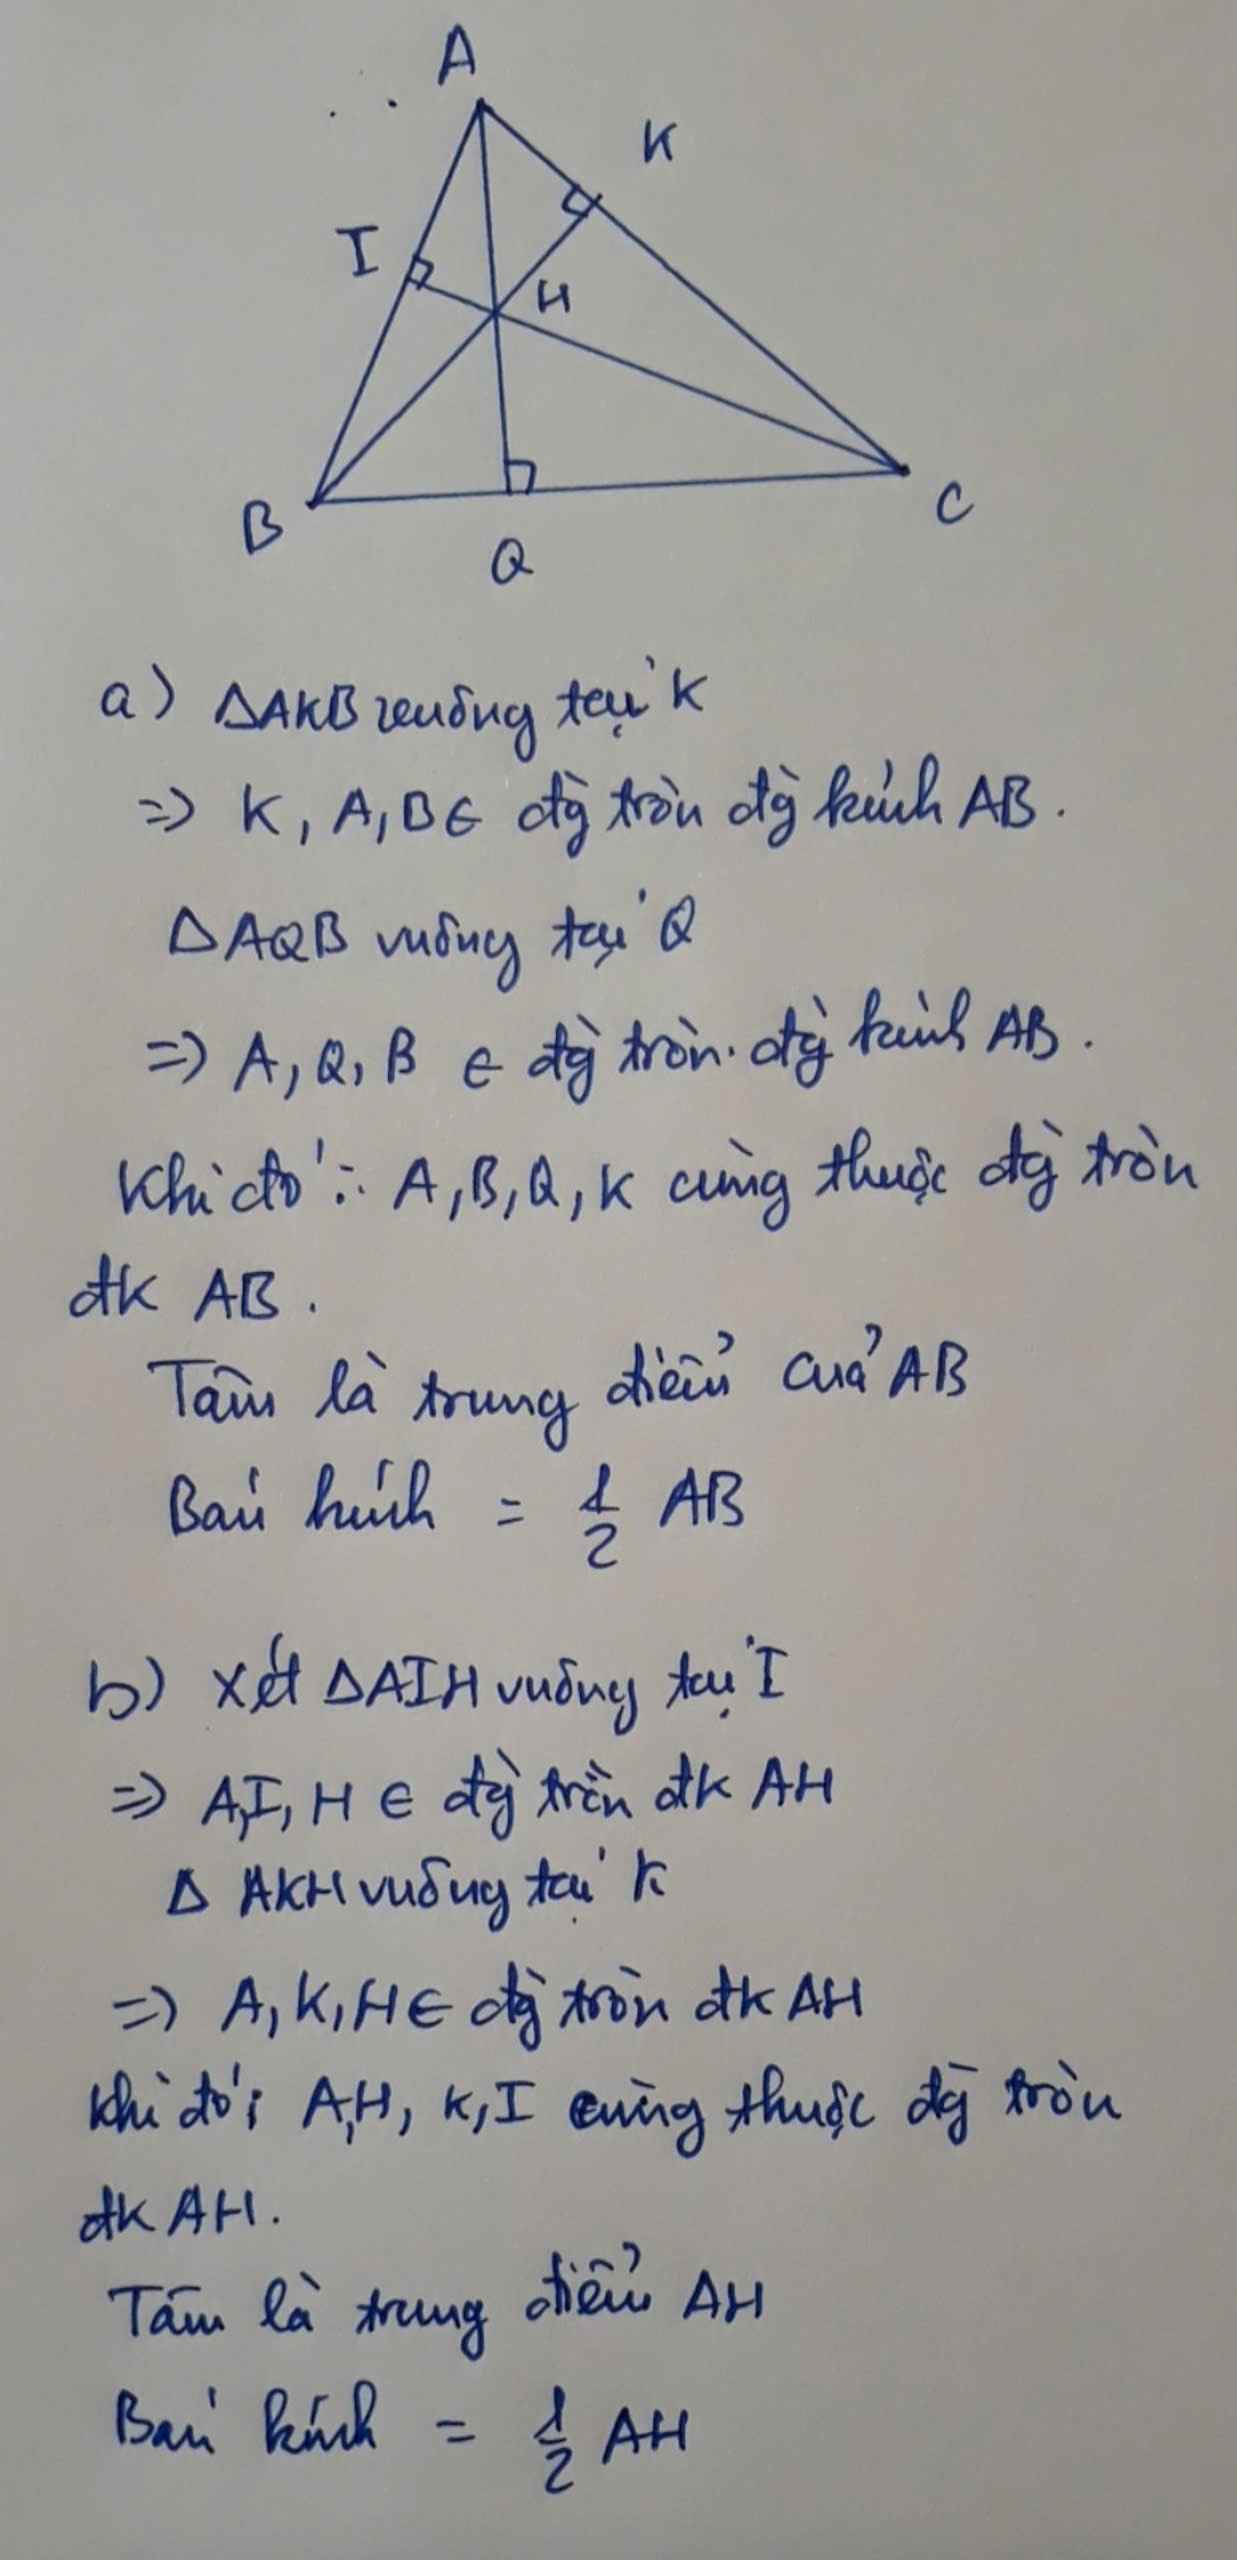 A
K
I
H
B
Q
C
a) ΔAKB vuông tại K
=> K, A, B ∈ đg̀ tròn đg̀ kính AB.
ΔAQB vuông tại Q
=> A, Q, B ∈ đg̀ tròn đg̀ kính AB.
Khi đó: A, B, Q, K cùng thuộc đg̀ tròn
đk AB.
Tâm là trung điểm của AB
Bán kính = 1/2 AB
b) Xét ΔAIH vuông tại I
=> A, I, H ∈ đg̀ tròn đk AH
Δ AKH vuông tại K
=> A, K, H ∈ đg̀ tròn đk AH
Khi đó: A, H, K, I cùng thuộc đg̀ tròn
đk AH.
Tâm là trung điểm AH
Bán kính = 1/2 AH